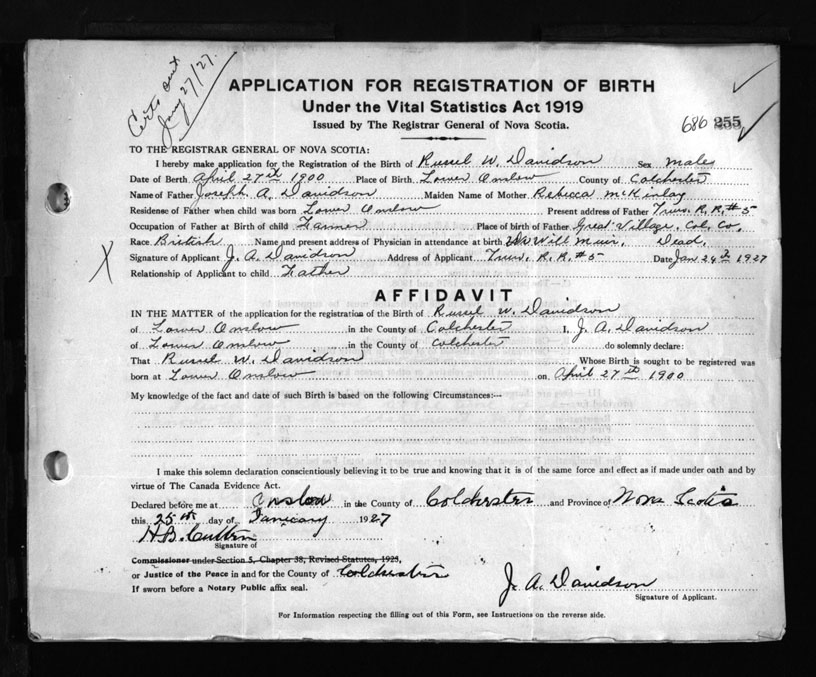 Certs sent
Jany 27/27.
APPLICATION FOR REGISTRATION OF BIRTH
Under the Vital Statistics Act 1919
Issued by The Registrar General of Nova Scotia.
686 255
TO THE REGISTRAR GENERAL OF NOVA SCOTIA:
I hereby make application for the Registration of the Birth of Russel W. Davidson Sex male
Date of Birth April 27th 1900 Place of Birth Lower Onslow County of Colchester
Name of Father Joseph A. Davidson Maiden Name of Mother Rebecca McKinlay
Residence of Father when child was born Lower Onslow Present address of Father Truro, R.R.#5
Occupation of Father at Birth of child Farmer Place of birth of Father Great Village, Col. Co.
Race British Name and present address of Physician in attendance at birth Dr Will Muir, Dead.
Signature of Applicant J. A. Davidson Address of Applicant Truro, R.R.#5 Date Jan 24th 1927
Relationship of Applicant to child Father
X
AFFIDAVIT
IN THE MATTER of the application for the registration of the Birth of Russel W. Davidson
of Lower Onslow in the County of Colchester I, J. A. Davidson
of Lower Onslow in the County of Colchester do solemnly declare:
That Russel W. Davidson Whose Birth is sought to be registered was
born at Lower Onslow on April 27th 1900
My knowledge of the fact and date of such Birth is based on the following Circumstances:—
I make this solemn declaration conscientiously believing it to be true and knowing that it is of the same force and effect as if made under oath and by
virtue of The Canada Evidence Act.
Declared before me at Onslow in the County of Colchester and Province of Nova Scotia
this 25th day of January 1927
H.B.
Signature of
Commissioner under Section 5, Chapter 38, Revised Statutes, 1923,
or Justice of the Peace in and for the County of Colchester
If sworn before a Notary Public affix seal.
J. A. Davidson
Signature of Applicant.
For Information respecting the filling out of this Form, see Instructions on the reverse side.